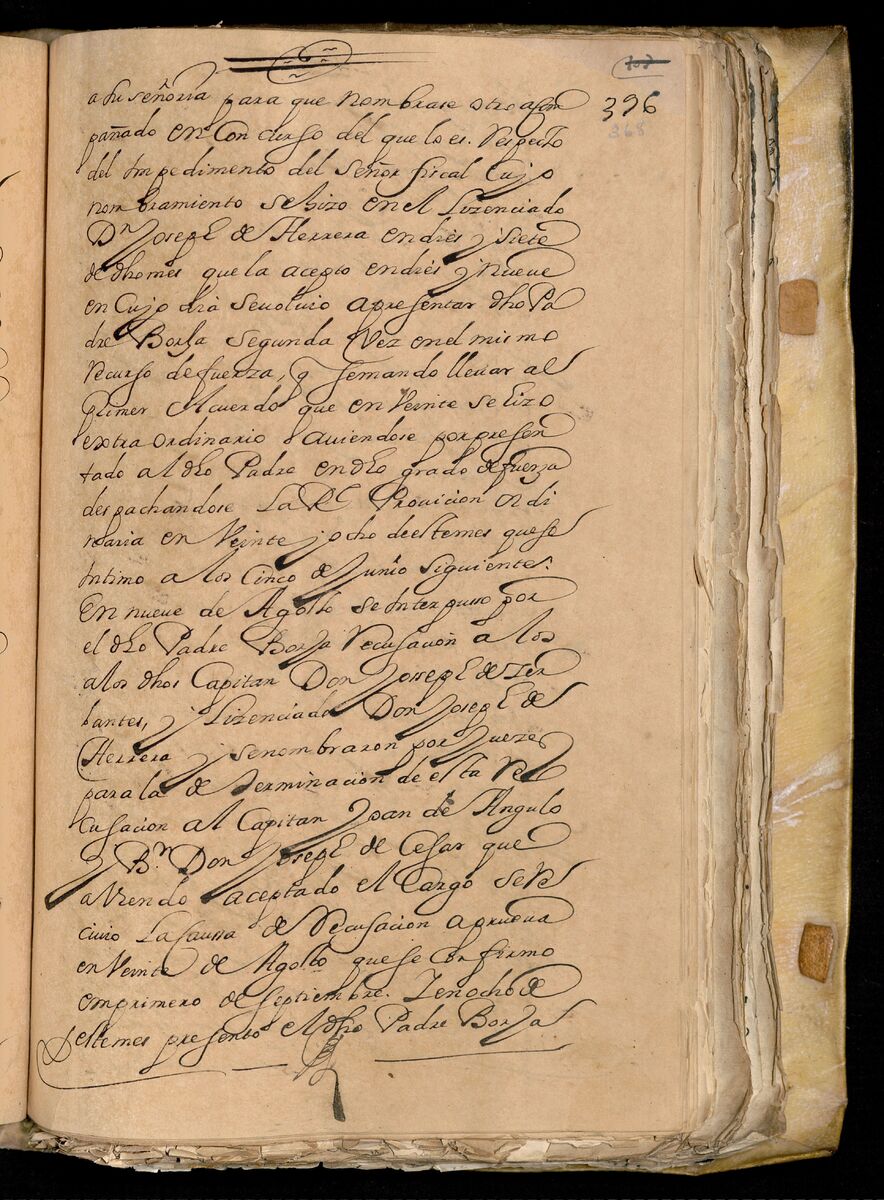 107
396
368
a su señoria para que nombrase otro acom
pañado en Concurso del que lo es. Respecto
del Impedimento del señor fiscal Cujo
nombramiento se hizo en el Lizenciado
Dn Joseph de Herrera en dies y siete
de dho mes que la acepto en dies y nueve
en Cujo dia se voluio apresentar dho Pa
dre Borja segunda Vez en el mismo
recurso de fuerza, q se mando lleuar al
primer Acuerdo que en Veinte se hizo
extraordinario auiendose por presen
tado al dho Padre en dho grado de fuerza
despachandose La Rl Prouicion ordi
naria en Veinte y ocho de este mes que se
Intimo a los Cinco de Junio siguiente.
En nueve de Agosto se Interpusso por
el dho Padre Borja Recusacion a los
a los dhos Capitan Don Joseph de Zer
bantes, y Lizenciado Don Joseph de
Herrera y se nombraron por Juezes
para la determinacion de esta Re
cusacion al Capitan Joan de Angulo
y Br. Don Joseph de Cesar que
aviendo aceptado el Cargo se Re
civio La Caussa de Recusacion aprueva
en Veinte de Agosto que se confirmo
en primero de septiembre. Y en ocho de
este mes presento el dho Padre Borja